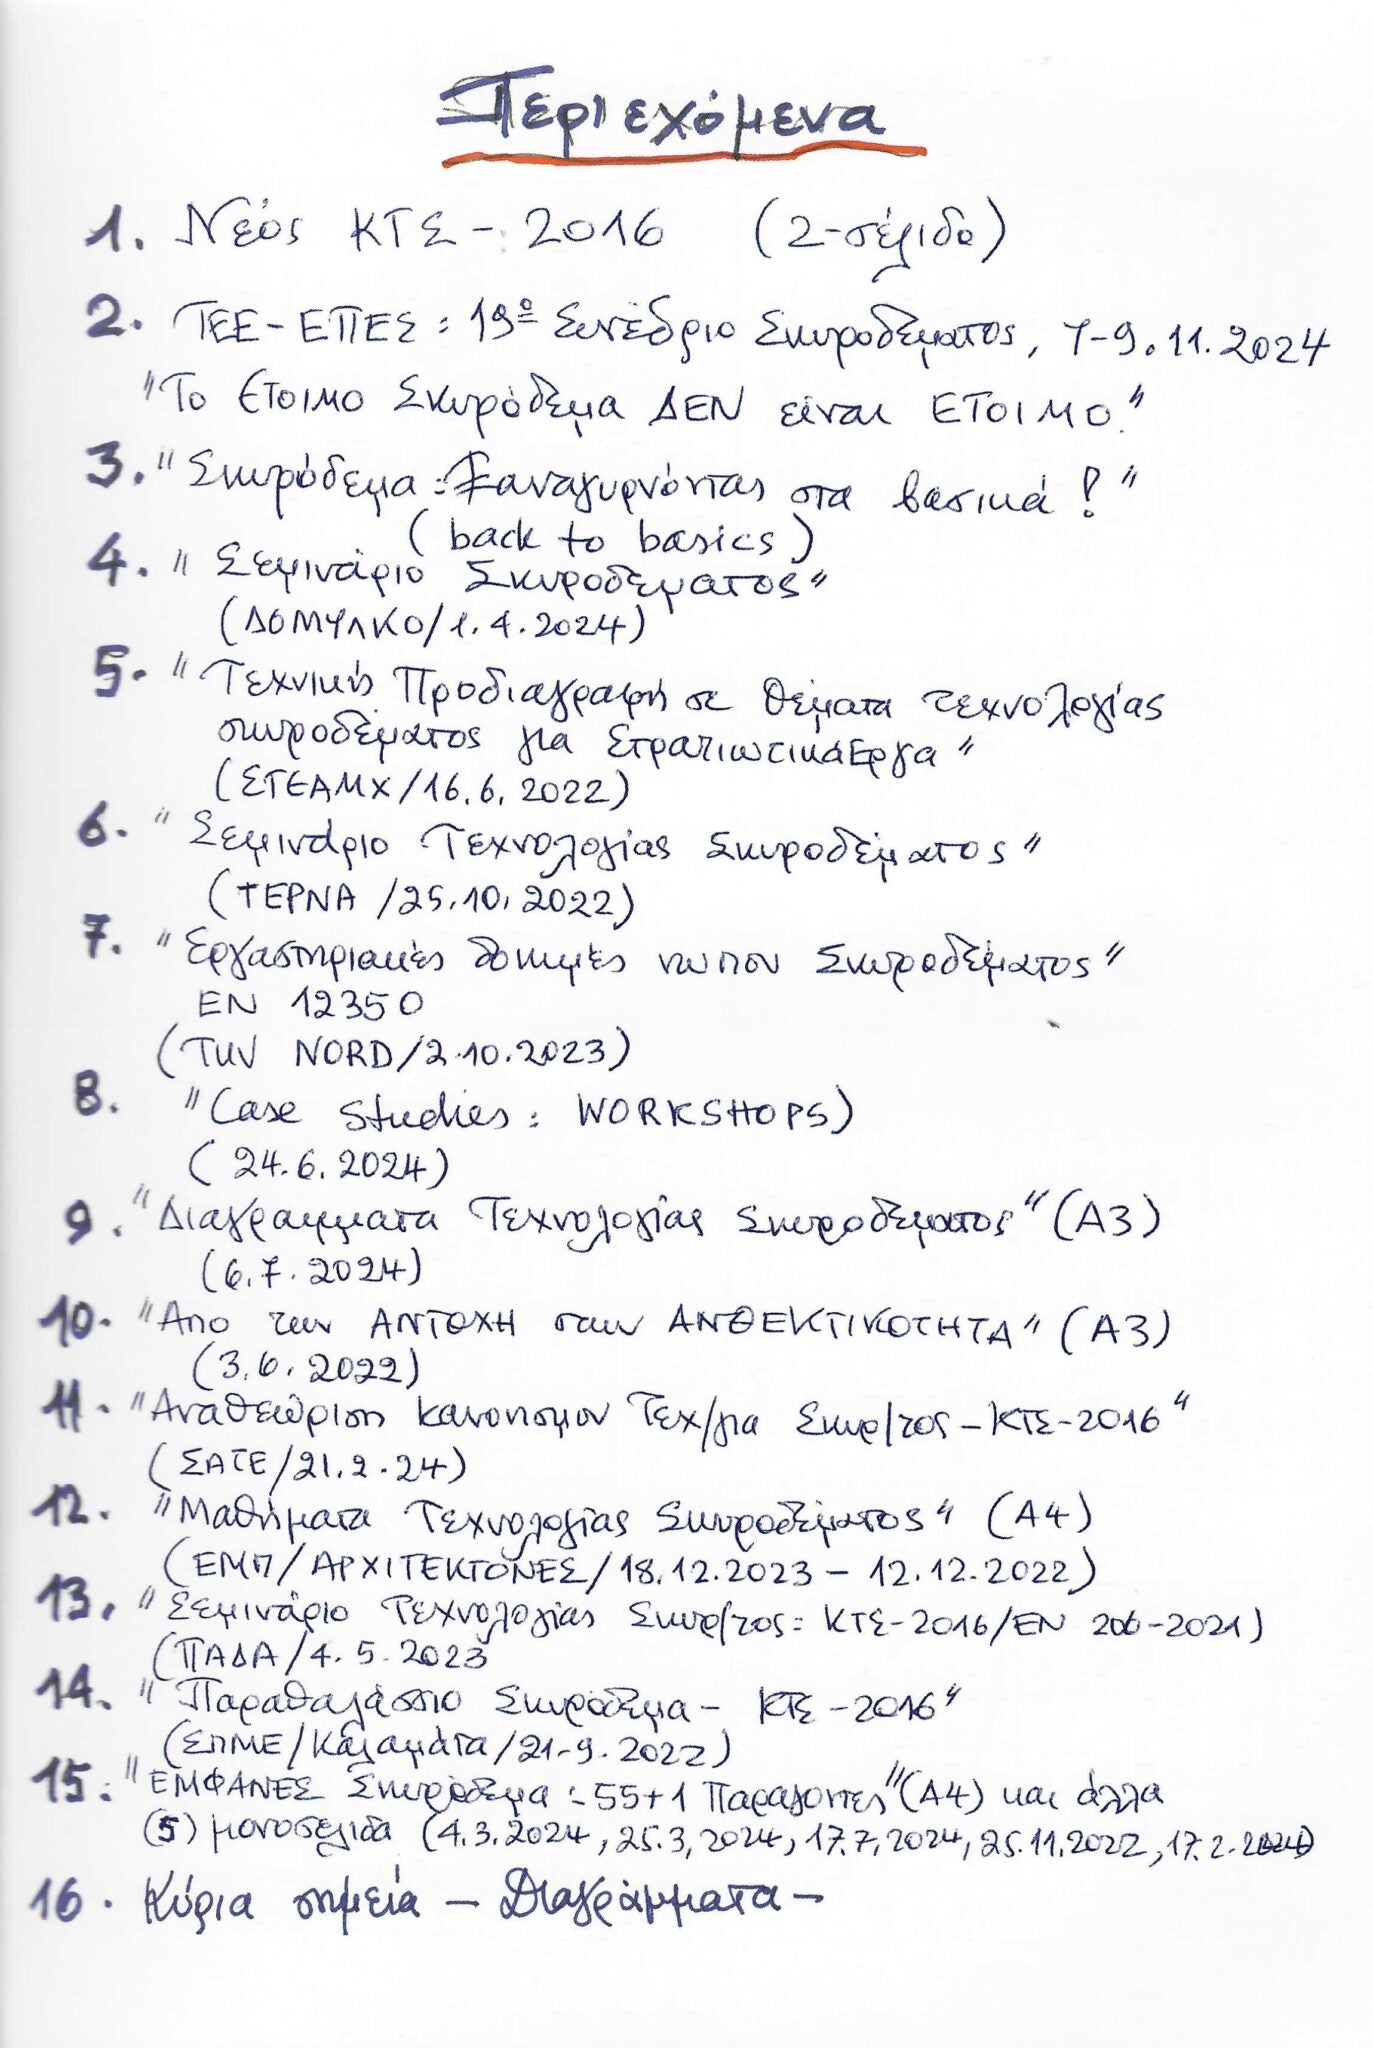 Περιεχόμενα
1. Νέος ΚΤΣ - 2016 (2-σέλιδο)
2. ΤΕΕ-ΕΠΕΣ: 19º Συνέδριο Σκυροδέματος, 7-9.11.2024
"Το Ετοιμο Σκυρόδεμα ΔΕΝ είναι ΕΤΟΙΜΟ."
3. "Σκυρόδεμα: Ξαναγυρνόντας στα βασικά!"
(back to basics)
4. "Σεμινάριο Σκυροδέματος"
(ΔΟΜΥΛΚΟ/1.4.2024)
5. "Τεχνική Προδιαγραφή σε θέματα τεχνολογίας
σκυροδέματος για Στρατιωτικά Εργα"
(ΣΤΕΑΜΧ/16.6.2022)
6. "Σεμινάριο Τεχνολογίας Σκυροδέματος"
(ΤΕΡΝΑ /25.10.2022)
7. "Εργαστηριακές δοκιμές νωπου Σκυροδέματος"
ΕΝ 12350
(TUV NORD/2.10.2023)
8. "Case Studies: WORKSHOPS)
(24.6.2024)
9. "Διαγραμματα Τεχνολογίας Σκυροδεματος" (Α3)
(6.7.2024)
10. "Απο την ΑΝΤΟΧΗ στην ΑΝΘΕΚΤΙΚΟΤΗΤΑ" (Α3)
(3.6.2022)
11. "Αναθεώριση κανονισμου Τεχ/για Σκυρ/τος - ΚΤΣ-2016"
(ΣΑΤΕ/21.2.24)
12. "Μαθήματα Τεχνολογίας Σκυροδέματος" (Α4)
(ΕΜΠ/ΑΡΧΙΤΕΚΤΟΝΕΣ/18.12.2023 - 12.12.2022)
13. "Σεμινάριο Τεχνολογίας Σκυρ/τος: ΚΤΣ-2016/ΕΝ 206-2021)
(ΠΑΔΑ/4.5.2023
14. "Παραθαλάσσιο Σκυρόδεμα - ΚΤΣ-2016"
(ΣΠΜΕ/Καλαμάτα/21-9.2022)
15. "ΕΜΦΑΝΕΣ Σκυρόδεμα: 55+1 Παραγοντες" (Α4) και άλλα
(5) μονοσελιδα (4.3.2024, 25.3.2024, 17.7.2024, 25.11.2022, 17.2.2024)
16. Κύρια σημεία - Διαγράμματα -